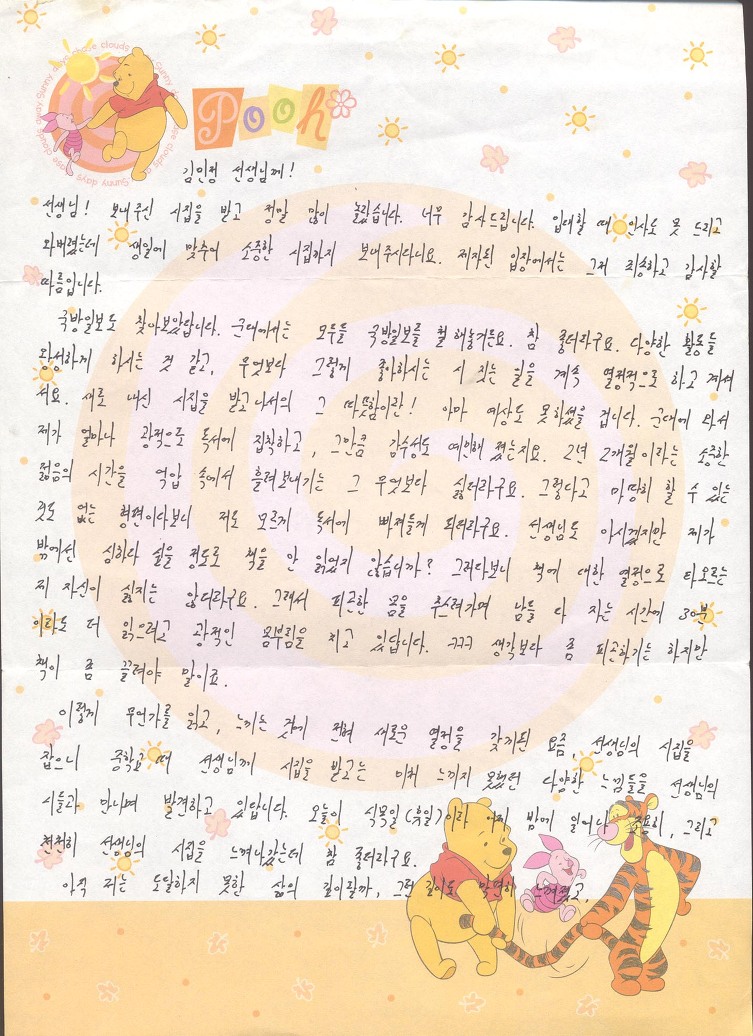 Sunny days above clouds
Pooh
김인정 선생님께!
선생님! 보내주신 시집을 받고 정말 많이 놀랐습니다. 너무 감사드립니다. 입대할 때 인사도 못 드리고
와버렸는데 생일에 맞추어 소중한 시집까지 보내주시다니요. 제자된 입장에서는 그저 죄송하고 감사할
따름입니다.
국방일보도 찾아보았답니다. 군대에서는 모두들 국방일보를 필해놓거든요. 참 좋더라구요. 다양한 활동들
왕성하게 하시는 것 같고, 무엇보다 그렇게 좋아하시는 시 짓는 일을 계속 열정적으로 하고 계셔
서요. 새로 내신 시집을 받고나서의 그 따뜻함이란! 아마 예상도 못하셨을 겁니다. 군대에 와서
제가 얼마나 광적으로 독서에 집착하고, 그만큼 감수성도 예민해 졌는지요. 2년 2개월이라는 소중한
젊음의 시간을 억압 속에서 흘려보내기는 그 무엇보다 싫더라구요. 그렇다고 마땅히 할 수 있는
것도 없는 형편이다보니 저도 모르게 독서에 빠져들게 되더라구요. 선생님도 아시겠지만 제가
밖에선 심하다 싶을 정도로 책을 안 읽었지 않습니까? 그러다보니 책에 대한 열정으로 타오르는
제 자신이 싫지는 않더라구요. 그래서 피곤한 몸을 추스려가며 남들 다 자는 시간에 30분
이라도 더 읽으려고 광적인 몸부림을 치고 있답니다. ㅋㅋㅋ 생각보다 좀 피곤하기는 하지만
책이 좀 끌려야 말이죠.
이렇게 무언가를 읽고, 느끼는 것에 전혀 새로운 열정을 갖게된 요즘, 선생님의 시집을
잡으니 중학교 때 선생님께 시집을 받고는 미처 느끼지 못했던 다양한 느낌들을 선생님의
시들과 만나며 발견하고 있답니다. 오늘이 식목일(휴일)이라 어제 밤에 일어나 조용히, 그리고
천천히 선생님의 시집을 느껴나갔는데 참 좋더라구요.
아직 저는 도달하지 못한 삶의 길이랄까, 그런 길이도 막연히 느껴졌고,